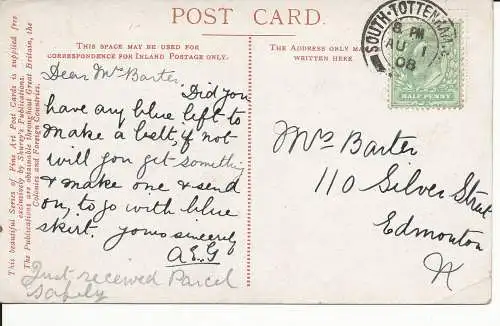 POST CARD.
THIS SPACE MAY BE USED FOR
CORRESPONDENCE FOR INLAND POSTAGE ONLY.
THE ADDRESS ONLY MAY
WRITTEN HERE
SOUTH·TOTTENHAM
8 PM
AU 1
08
HALF PENNY
Dear Mrs Barter. Did you
have any blue left to
make a belt, if not
will you get something
& make one & send
on, to go with blue
skirt. Yours sincerely
A.E.G
Just received Parcel
safely
Mrs Barter
110 Silver Street
Edmonton
N
This beautiful Series of Fine Art Post Cards is supplied free
exclusively by Shurey's Publications.
The Publications are obtainable throughout Great Britain, the
Colonies and Foreign Countries.